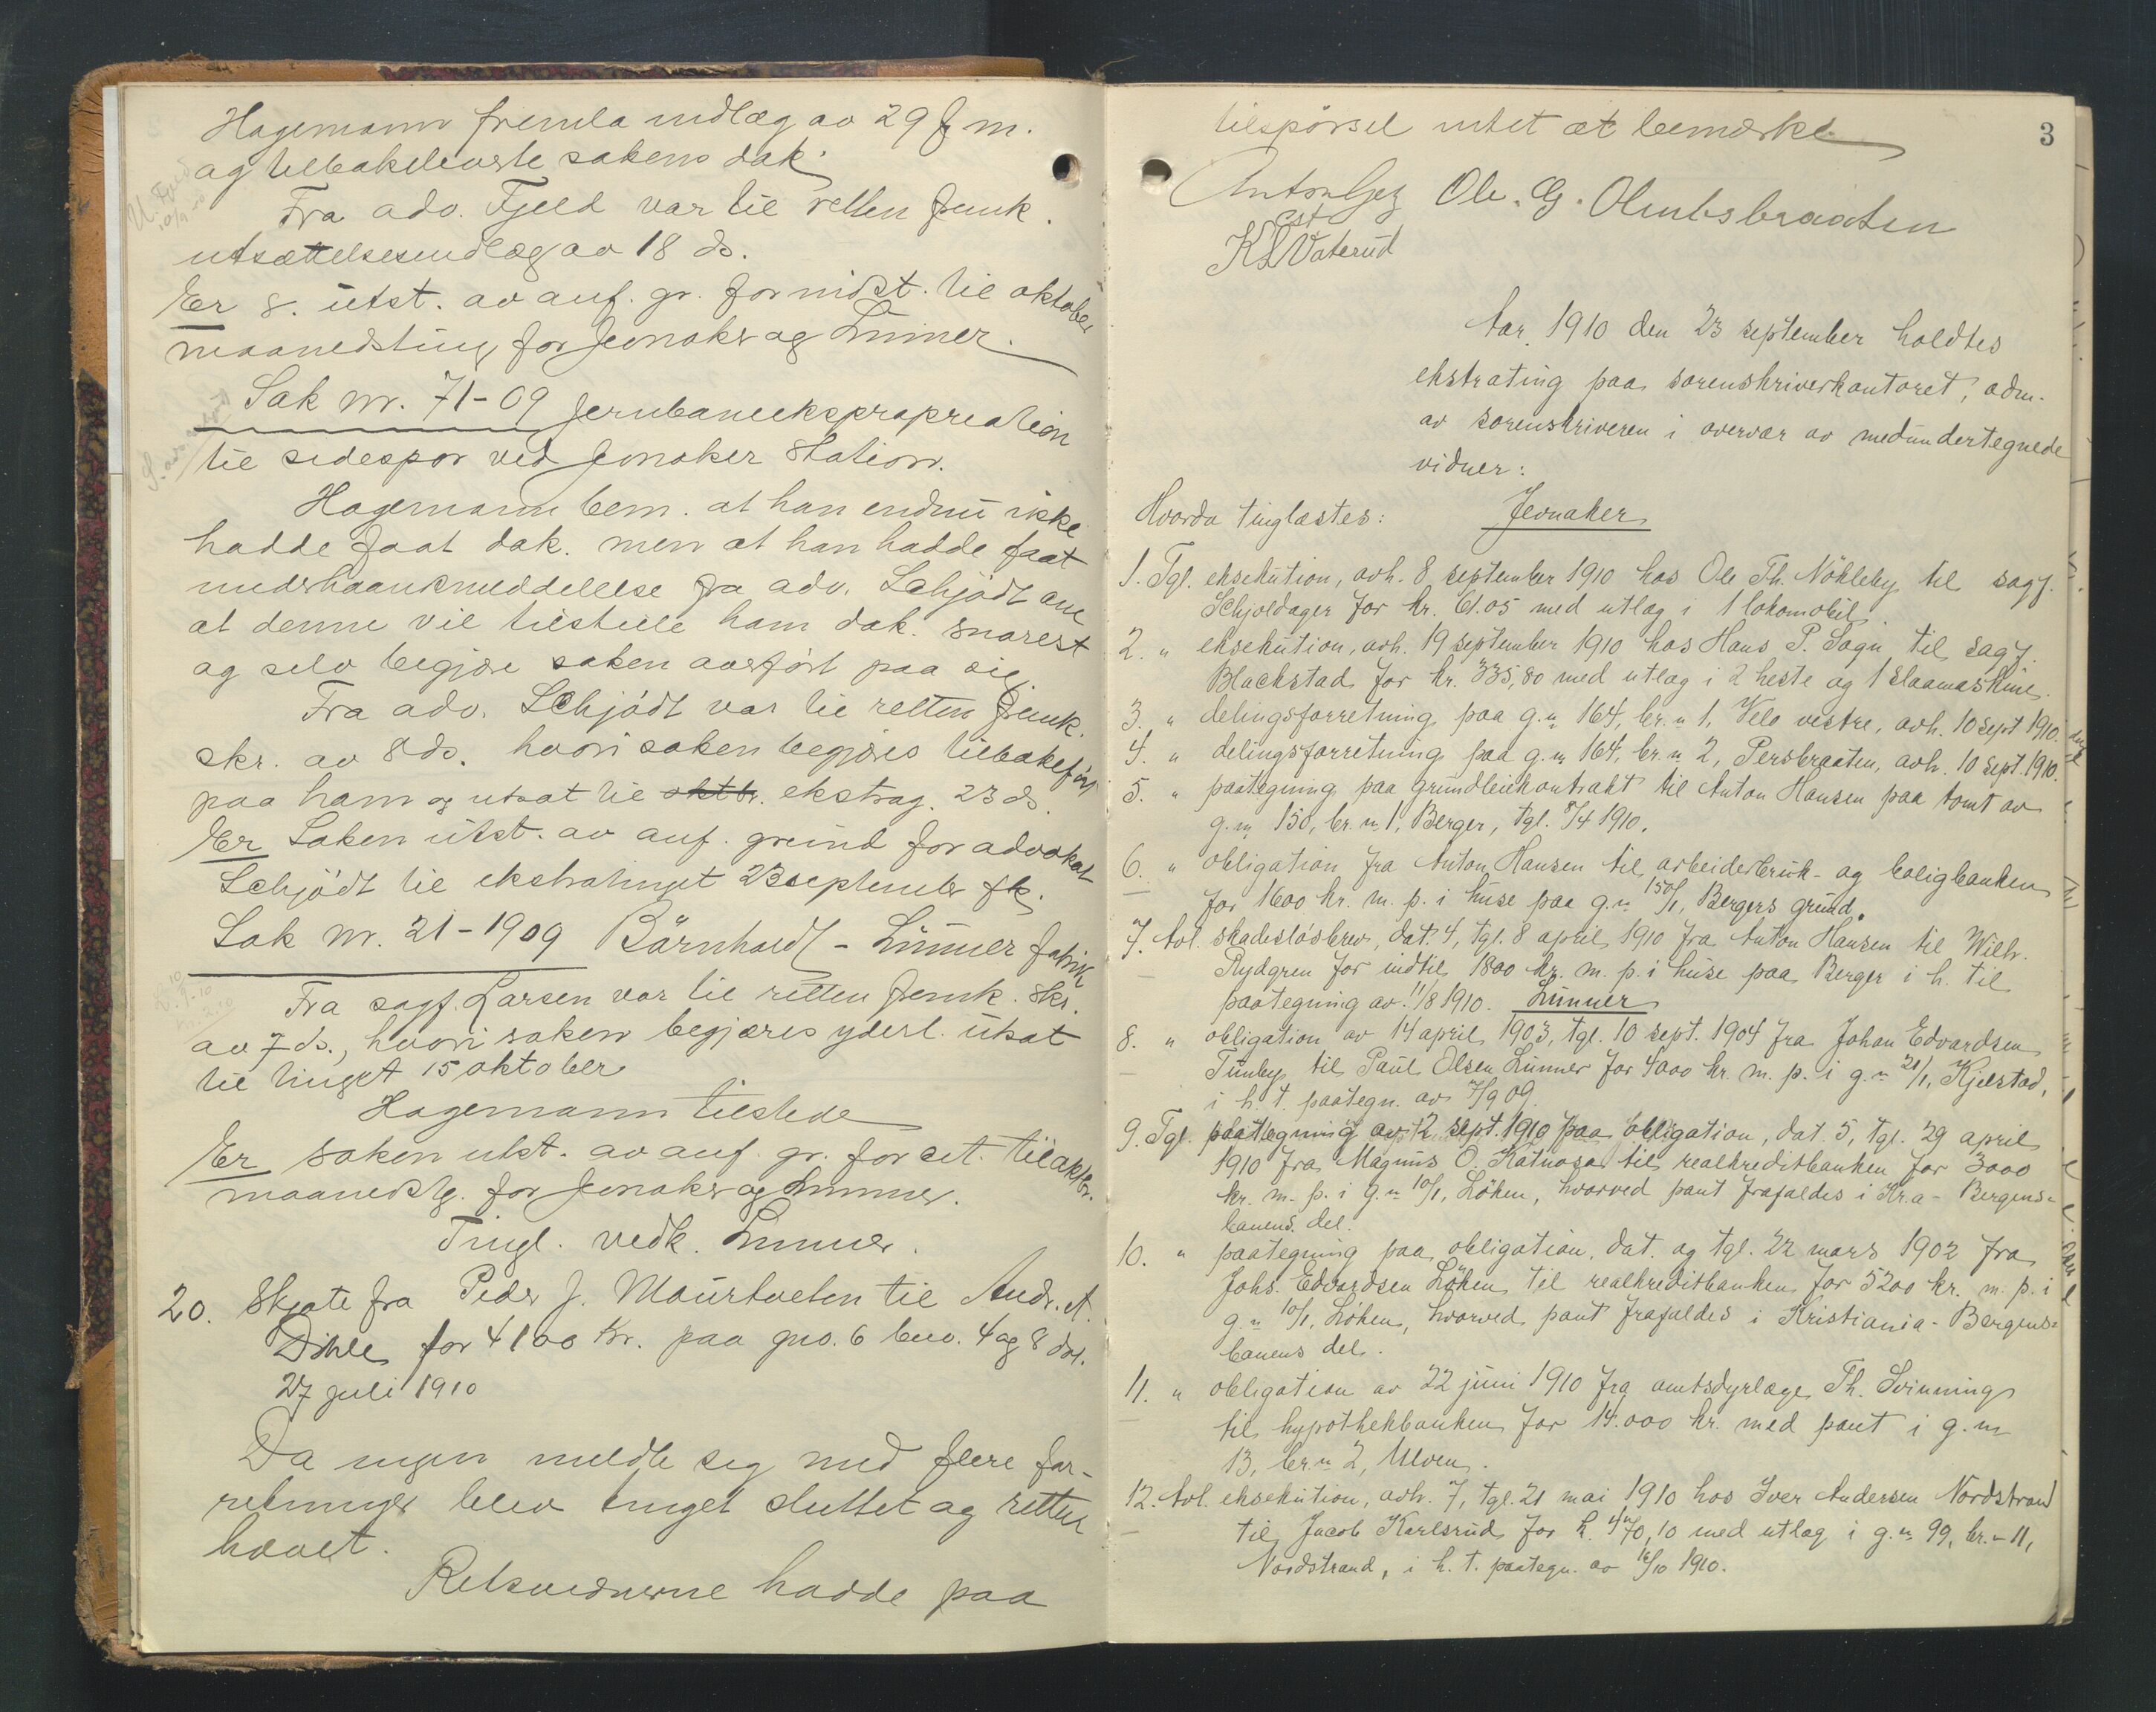 Hagemann fremla indlæg av 29 f. m.
og tilbakeleverte sakens dok.
Fra adv. Fjeld var til retten fremk.
utsættelsesindlæg av 18 ds.
Er s. utst. av anf. gr. for indst. til oktober
maanedsting for Jevnaker og Lunner.
Sak nr. 71-09 Jernbaneekspropriation
til sidespor ved Jevnaker Station.
Hagemann bem. at han endnu ikke
hadde faat dok. men at han hadde faat
underhaandsmeddelelse fra adv. Schjødt om
at denne vil tilstille ham dok. snarest
og selv begjære saken overført paa sig.
Fra adv. Schjødt var til retten fremk.
skr. av 8 ds. hvori saken begjæres tilbakeført
paa ham og utsat til oktbr. ekstrag. 23 ds.
Er Saken utst. av anf. grund for advokat
Schjødt til ekstratinget 23 september fk.
Sak nr. 21-1909 Børnholdt - Lunner fabrik
Fra sagf. Larsen var til retten fremk. skr.
av 7 ds., hvori saken begjæres yderl. utsat
til tinget 15 oktober
Hagemann tilstede
Er saken utst. av anf. gr. for cit. til oktbr.
maanedstg. for Jevnaker og Lunner.
Tingl. vedk. Lunner.
20. Skjøte fra Peder J. Maurtveten til Andr. A.
Dihle for 4100 Kr. paa gno. 6 bno. 4 og 8 dat.
27 juli 1910
Da ingen meldte sig med flere for-
retninger blev tinget sluttet og retten
hævet.
Retsvidnerne hadde paa
3
tilspørsel intet at bemærke
Ole. G. Olimbsbraaten
cst
K L Vaterud
Aar 1910 den 23 september holdtes
ekstrating paa sorenskriverkontoret, adm.
av sorenskriveren i overvær av medundertegnede
vidner:
Hvorda tinglæstes: Jevnaker
1. Tgl. eksekution, avh. 8 september 1910 hos Ole Th. Nøkleby til sagf.
Schjoldager for kr. 61.05 med utlæg i 1 lokomobil.
2. " eksekution, avh. 19 september 1910 hos Hans P. Sogn til sagf.
Blackstad for kr. 335,80 med utlæg i 2 heste og 1 slaamaskine.
3. " delingsforretning paa g.n. 164, br.n. 1, Velo vestre, avh. 10 sept 1910.
4. " delingsforretning paa g.n. 164, br.n. 2, Persbraaten, avh. 10 sept. 1910.
5. " paategning paa grundleiekontrakt til Anton Hansen paa tomt av
g.n. 150, br.n. 1, Berger, tgl. 8/4 1910.
6. " obligation fra Anton Hansen til arbeiderbruk- og boligbanken
for 1600 kr. m. p. i huse paa g.n. 150/1, Bergers grund.
7. Avl. skadesløsbrev, dat. 4, tgl. 8 april 1910 fra Anton Hansen til Wilh.
Rydgren for indtil 1800 kr. m. p. i huse paa Berger i h. til
paategning av 11/8 1910. Lunner
8. " obligation av 14 april 1903, tgl. 10 sept. 1904 fra Johan Edvardsen
Tunby til Paul Olsen Lunner for 4000 kr. m. p. i g.n. 21/1, Kjelstad,
i h. t. paategn. av 7/9 09.
9. Tgl. paategning av 2 sept. 1910 paa obligation, dat. 5, tgl. 29 april
1910 fra Magnus O. Katnosa til realkreditbanken for 3000
kr. m. p. i g.n. 10/1, Løken, hvorved pant frafaldes i Kr.a - Bergens-
banens del.
10. " paategning paa obligation, dat. og tgl. 22 mars 1902 fra
Johs. Edvardsen Løken til realkreditbanken for 5200 kr. m. p. i
g.n. 10/1, Løken, hvorved pant frafaldes i Kristiania - Bergens-
banens del.
11. " obligation av 22 juni 1910 fra amtsdyrlæge Th. Svinning
til hypothekbanken for 14.000 kr. med pant i g.n.
13, br.n. 2, Ulven.
12. Avl. eksekution, avh. 7, tgl. 21 mai 1910 hos Iver Andersen Nordstrand
til Jacob Karlsrud for k. 470,10 med utlæg i g.n. 99, br.n. 11,
Nordstrand, i h. t. paategn. av 16/10 1910.